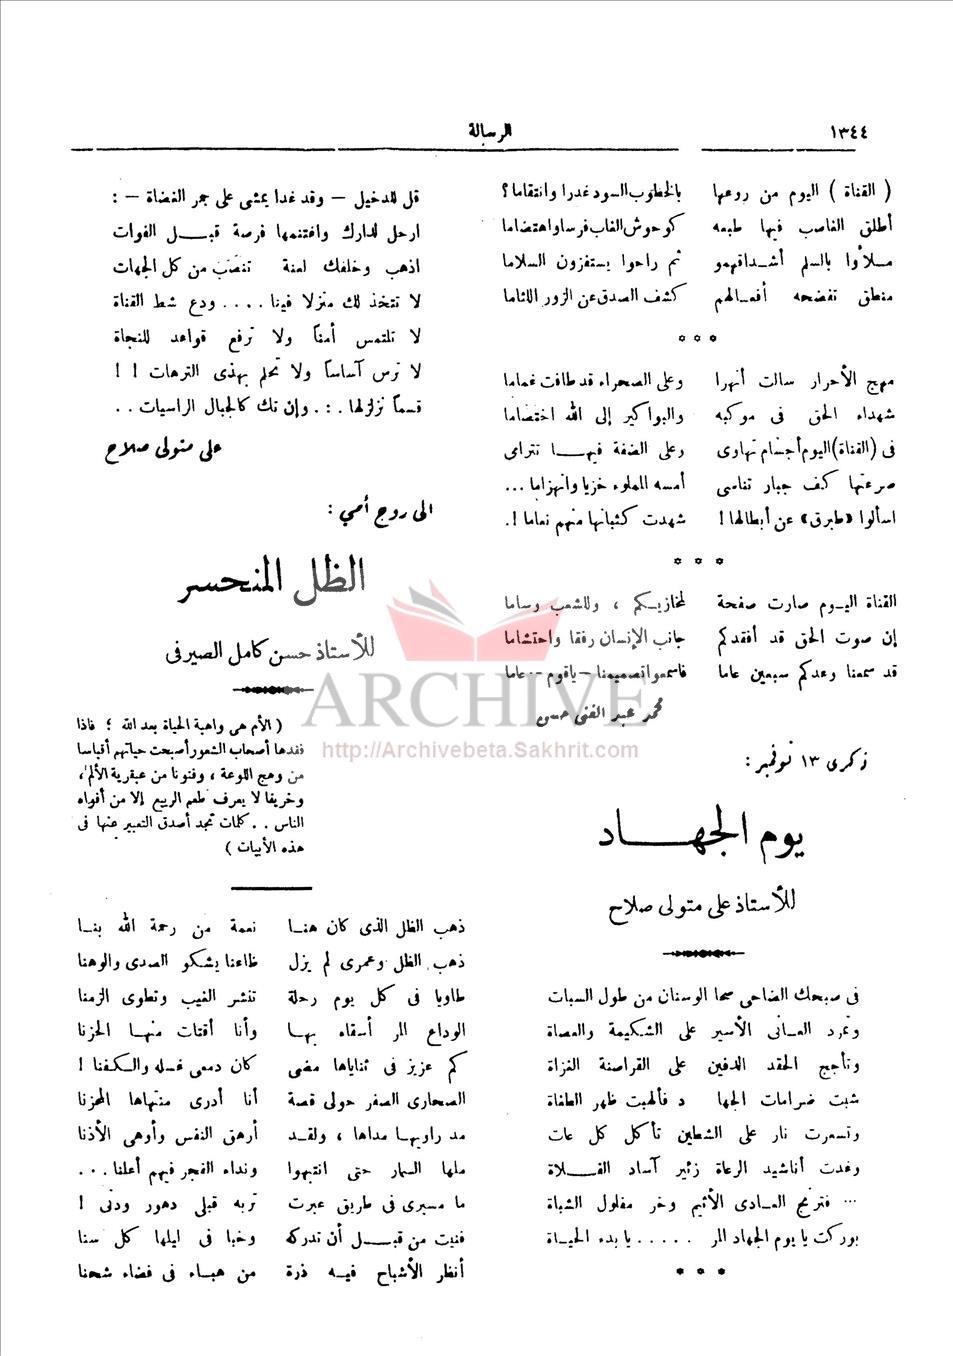 ١٣٤٤
الرسالة
( القناة ) اليوم من روعها بالخطوب السود غدرا وانتقاما ؟
أطلق الغاصب فيها طبعه كوحوش الغاب فرسا واهتضاما
ملأوا بالسلم أشداقهمو ثم راحوا يستفزون السلاما
منطق تفضحه أفعالهم كشف الصدق عن الزور اللثاما
* * *
مهج الأحرار سالت أنهرا وعلى الصحراء قد طافت غماما
شهداء الحق فى موكبه والبواكير إلى الله اختصاما
فى (القناة) اليوم أجسام تهاوى وعلى الضفة فيها تترامى
صرعتها كيف جبار تناسى أمسه المملوء خزيا وانهزاما ...
اسألوا «طبرق» عن أبطالها ! شهدت كثبانها منهم نعاما !.
* * *
القناة اليوم صارت صفحة لمخازيكم ، وللشعب وساما
إن صوت الحق قد أفقدكم جانب الإنسان رفقا واحتشاما
قد سمعنا وعدكم سبعين عاما فاسمعوا تصميمنا – ياقوم – عاما
محمد عبد الغنى حسن
ذكرى ١٣ نوفمبر :
يوم الجهاد
للأستاذ على متولى صلاح
فى صبحك الضاحى صحا الوسنان من طول السبات
وتمرد العانى الأسير على الشكيمة والعصاة
وتأجج الحقد الدفين على القراصنة الغزاة
شبت ضرامات الجها د فألهبت ظهر الطغاة
وتسعرت نار على الشطين تأكل كل عات
وغدت أناشيد الرعاة زئير آساد الفلاة
... فترنح العادى الأثيم وخر مفلول الشباة
بوركت يا يوم الجهاد المر ..... يا بدء الحياة
* * *
قل للدخيل – وقد غدا يمشى على جمر الغضاة – :
ارحل لدارك واغتنمها فرصة قبل الفوات
اذهب وخلفك لعنة تنصب من كل الجهات
لا تتخذ لك منزلا فينا .... ودع شط القناة
لا تلتمس أمناً ولا ترفع قواعد للنجاة
لا ترس آساساً ولا تحلم بهذى الترهات ! !
قسماً نزلزلها ... وإن تك كالجبال الراسيات ..
على متولى صلاح
الى روح أمي :
الظل المنحسر
للأستاذ حسن كامل الصيرفى
( الأم هى واهبة الحياة بعد الله ؛ فاذا
فقدها أصحاب الشعور أصبحت حياتهم أقباسا
من وهج اللوعة ، وفنونا من عبقرية الألم ،
وخريفا لا يعرف طعم الربيع إلا من أفواه
الناس .. كلمات تجد أصدق التعبير عنها فى
هذه الأبيات )
ذهب الظل الذى كان هنا نعمة من رحمة الله بنا
ذهب الظل وعمرى لم يزل ظاعنا يشكو الصدى والوهنا
طاويا فى كل يوم رحلة تنشر الغيب وتطوى الزمنا
الوداع المر أسقاه بها وأنا أقتات منها الحزنا
كم عزيز فى ثناياها مضى كان دمعى غسله والكفنا !
الصحارى الصفر حولى قصة أنا أدرى منتهاها المحزنا
مد راويها مداها ، ولقد أرهق النفس وأوهى الأذنا
ملها السمار حتى انتهوا ونداء الفجر فيهم أعلنا ...
ما مسيرى فى طريق عبرت تربه قبلى دهور ودنى !
فنيت من قبل أن تدركه وخبا فى ليلها كل سنا
أنظر الأشباح فيه ذرة من هباء فى فضاء شحنا
ARCHIVE
http://Archivebeta.Sakhrit.com